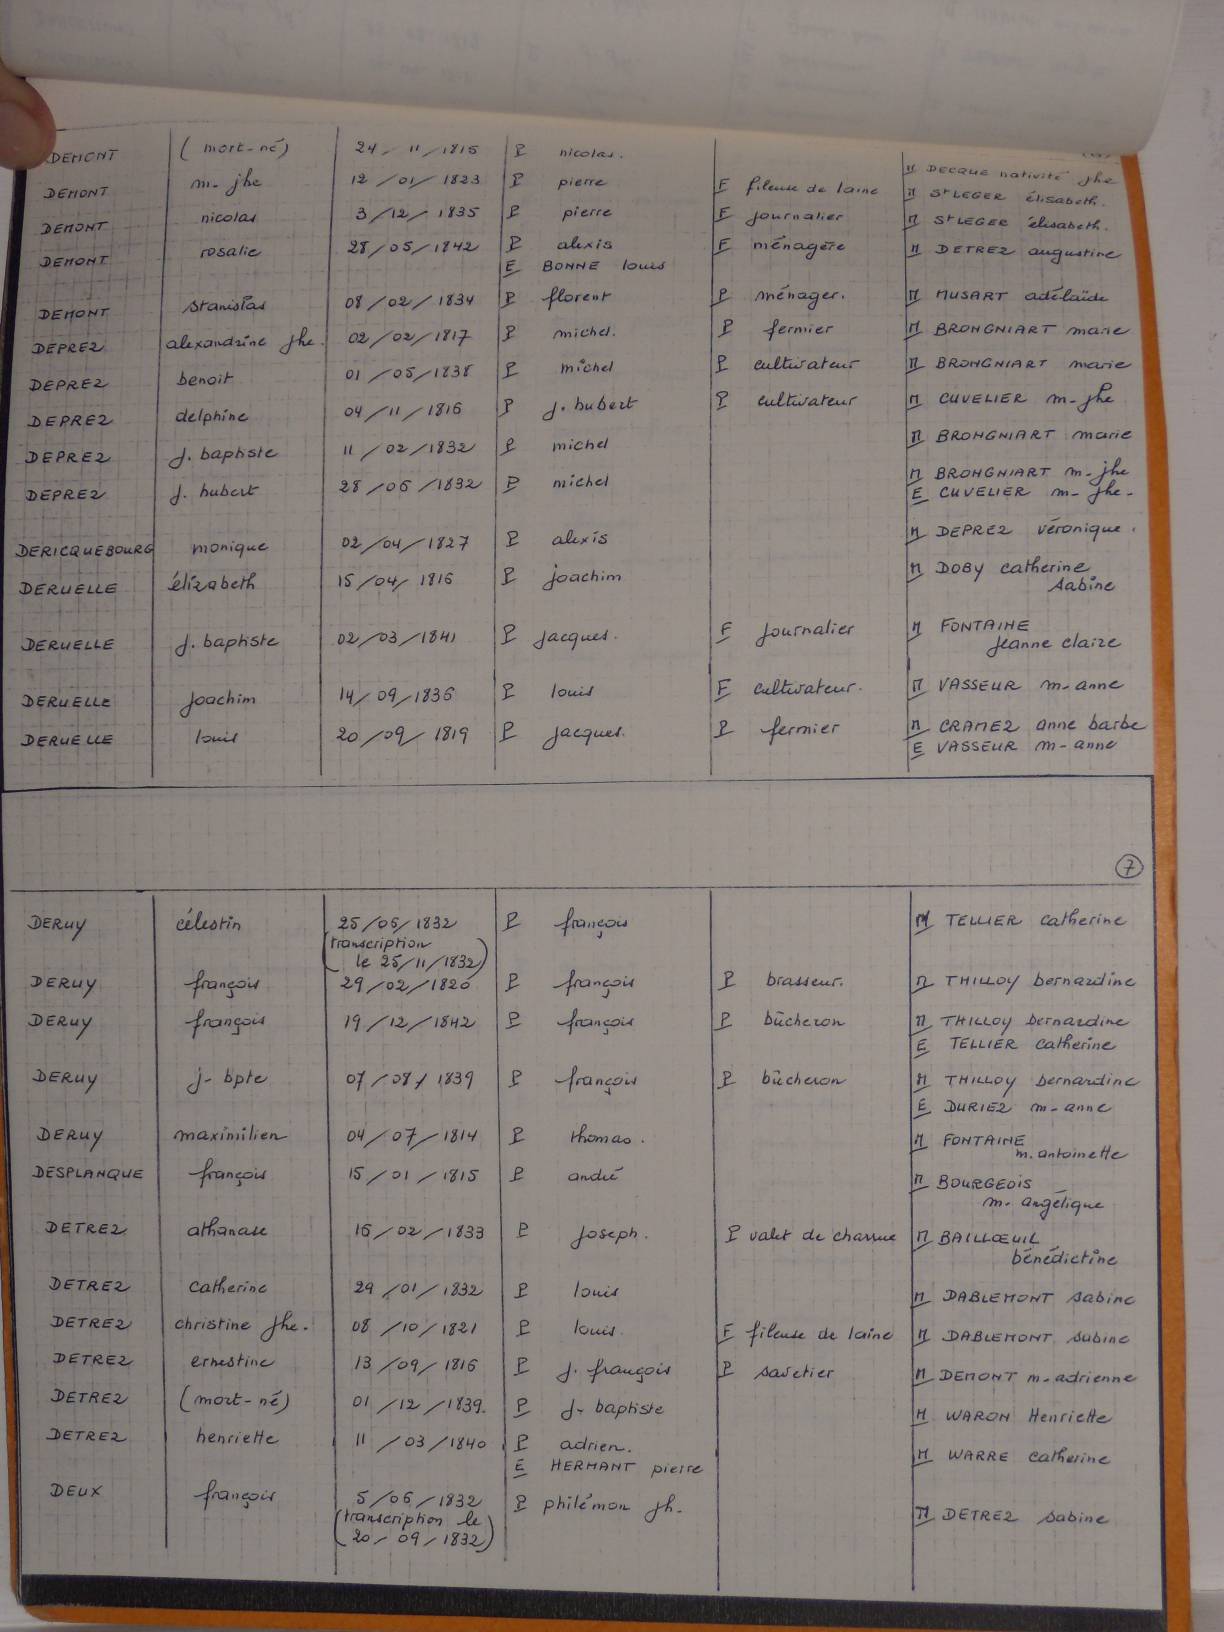 DEMONT (mort-né) 24/11/1815 P nicolas. M DECQUE nativité jhe
DEMONT m-jhe 12/01/1823 P pierre F fileuse de laine M St LEGER élisabeth.
DEMONT nicolas 3/12/1835 P pierre F journalier M St LEGER élisabeth.
DEMONT rosalie 28/05/1842 P alexis F ménagère M DETREZ augustine
E BONNE louis
DEMONT stanislas 08/02/1834 P florent P ménager. M MUSART adélaïde
DEPREZ alexandrine jhe. 02/02/1817 P michel. P fermier M BRONGNIART marie
DEPREZ benoit 01/05/1838 P michel P cultivateur M BRONGNIART marie
DEPREZ delphine 04/11/1816 P j. hubert P cultivateur M CUVELIER m-jhe
DEPREZ j. baptiste 11/02/1832 P michel M BRONGNIART marie
DEPREZ j. hubert 28/06/1832 P michel M BRONGNIART m-jhe
E CUVELIER m-jhe-
DERICQUEBOURG monique 02/04/1827 P alexis M DEPREZ véronique.
DERUELLE élizabeth 15/04/1816 P joachim M DOBY catherine
sabine
DERUELLE j. baptiste 02/03/1841 P jacques. F journalier M FONTAINE
jeanne claire
DERUELLE joachim 14/09/1836 P louis F cultivateur. M VASSEUR m-anne
DERUELLE louis 20/09/1819 P jacques. P fermier M CRAMEZ anne barbe
E VASSEUR m-anne
7
DERUY célestin 25/05/1832 P françois M TELLIER catherine
(transcription
le 25/11/1832)
DERUY françois 29/02/1820 P françois P brasseur. M THILLOY bernardine
DERUY françois 19/12/1842 P françois P bûcheron M THILLOY bernardine
E TELLIER catherine
DERUY j-bpte 07/08/1839 P françois P bûcheron M THILLOY bernardine
E DURIEZ m-anne
DERUY maximilien 04/07/1814 P thomas. M FONTAINE
m. antoinette
DESPLANQUE françois 15/01/1815 P andré M BOURGEOIS
m. angélique
DETREZ athanase 16/02/1833 P joseph. P valet de charrue M BAILLŒUIL
bénédictine
DETREZ catherine 29/01/1832 P louis M DABLEMONT sabine
DETREZ christine jhe. 08/10/1821 P louis. F fileuse de laine M DABLEMONT sabine
DETREZ ernestine 13/09/1816 P j. françois P savetier M DEMONT m-adrienne
DETREZ (mort-né) 01/12/1839. P j-baptiste M WARON Henriette
DETREZ henriette 11/03/1840 P adrien. M WARRE catherine
E HERMANT pierre
DEUX françois 5/06/1832 P philémon jh. M DETREZ sabine
(transcription le
20/09/1832)